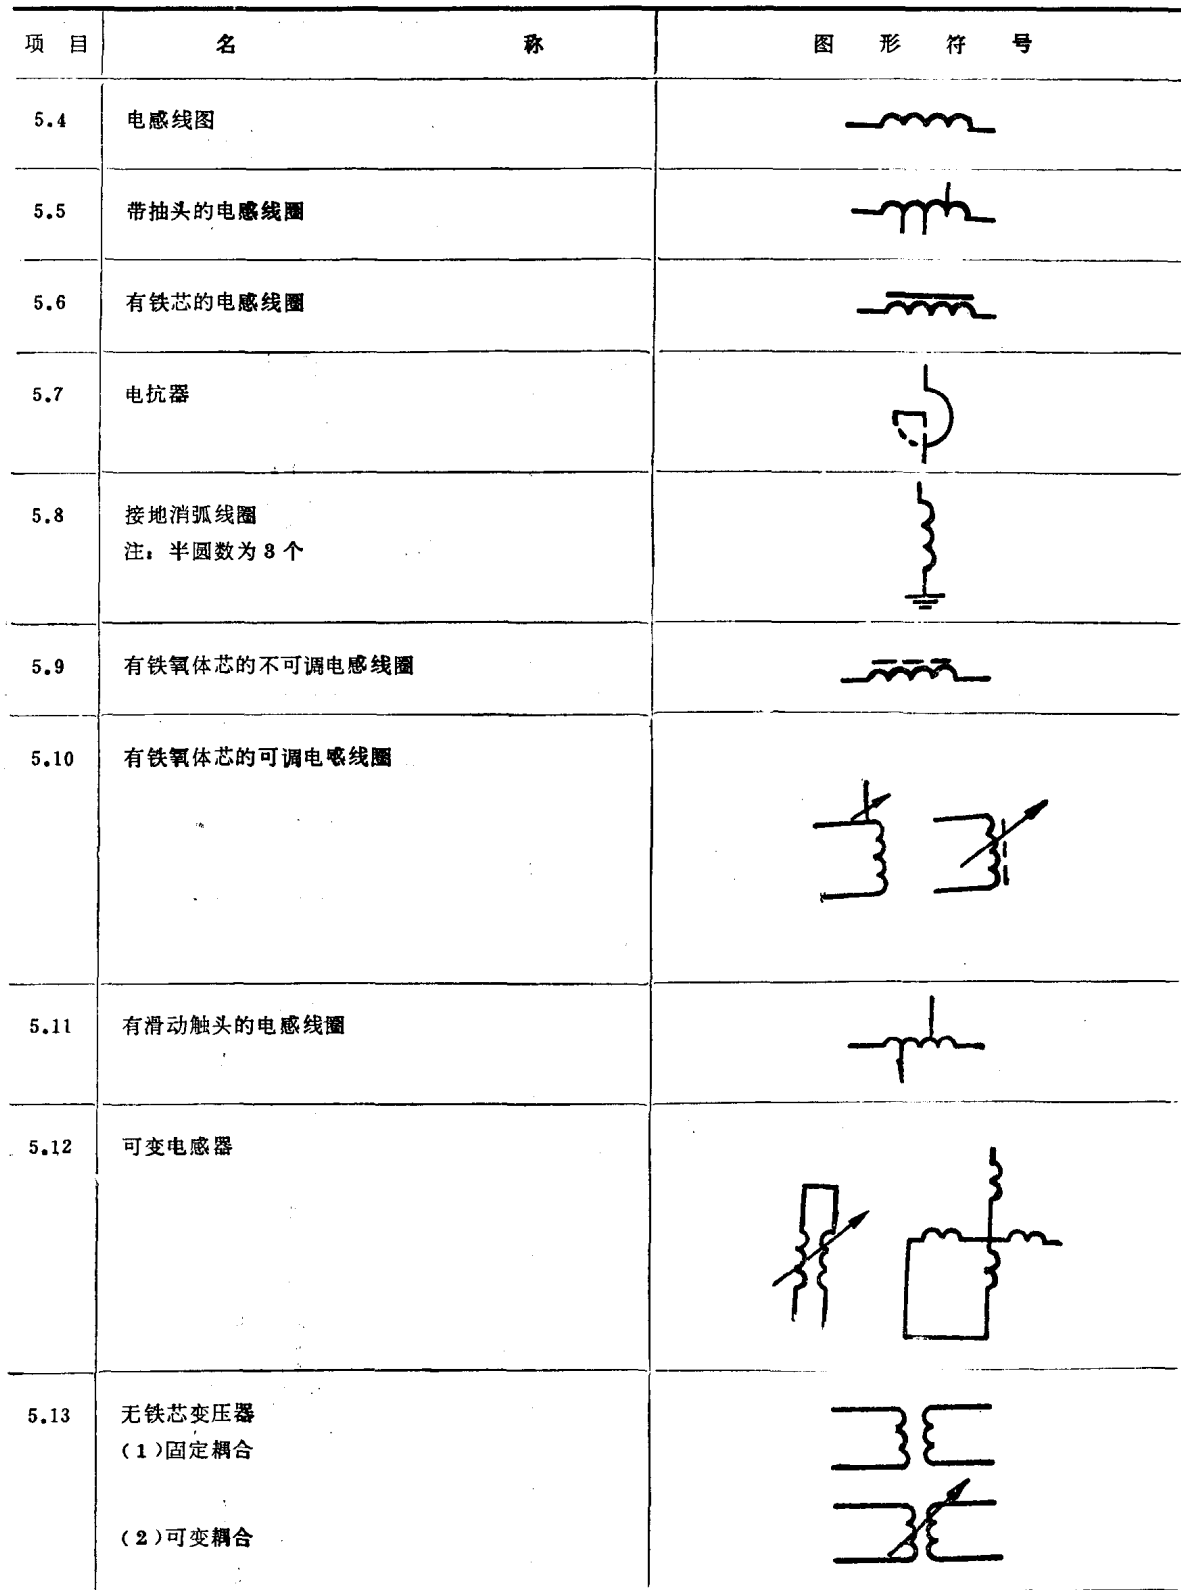 项 目 名 称 图 形 符 号
5.4 电感线图
5.5 带抽头的电感线圈
5.6 有铁芯的电感线圈
5.7 电抗器
5.8 接地消弧线圈
注：半圆数为 3 个
5.9 有铁氧体芯的不可调电感线圈
5.10 有铁氧体芯的可调电感线圈
5.11 有滑动触头的电感线圈
5.12 可变电感器
5.13 无铁芯变压器
（1）固定耦合
（2）可变耦合